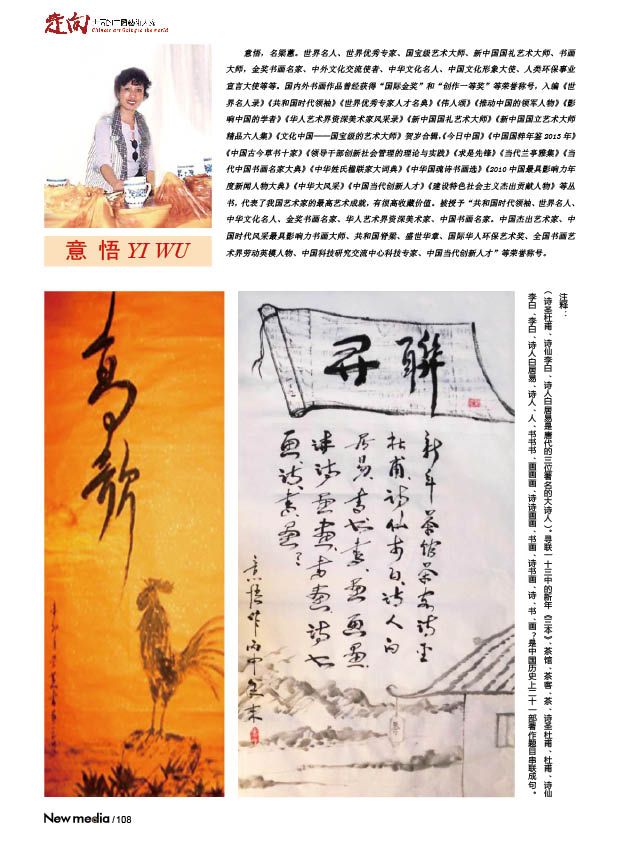 走向
Chinese art Going to the world
意悟，名梁蕙。世界名人、世界优秀专家、国宝级艺术大师、新中国国礼艺术大师、书画
大师，金奖书画名家、中外文化交流使者、中华文化名人、中国文化形象大使、人类环保事业
宣言大使等等。国内外书画作品曾经获得“国际金奖”和“创作一等奖”等荣誉称号，入编《世
界名人录》《共和国时代领袖》《世界优秀专家人才名典》《伟人颂》《推动中国的领军人物》《影
响中国的学者》《华人艺术界资深美术家风采录》《新中国国礼艺术大师》《新中国国立艺术大师
精品六人集》《文化中国——国宝级的艺术大师》贺岁合辑，《今日中国》《中国国粹年鉴2015年》
《中国古今草书十家》《领导干部创新社会管理的理论与实践》《求是先锋》《当代兰亭雅集》《当
代中国书画名家大典》《中华姓氏楹联家大词典》《中华国魂诗书画选》《2010中国最具影响力年
度新闻人物大典》《中华大风采》《中国当代创新人才》《建设特色社会主义杰出贡献人物》等丛
书，代表了我国艺术家的最高艺术成就，有很高收藏价值。被授予“共和国时代领袖、世界名人、
中华文化名人、金奖书画名家、华人艺术界资深美术家、中国书画名家。中国杰出艺术家、中
国时代风采最具影响力书画大师、共和国脊梁、盛世华章、国际华人环保艺术奖、全国书画艺
术界劳动英模人物、中国科技研究交流中心科技专家、中国当代创新人才”等荣誉称号。
意 悟 YI WU
高歌
聯尋
新年茶馆茶客诗圣
杜甫诗仙李白诗人白
意悟作丙申年末
注释：
（诗圣杜甫、诗仙李白、诗人白居易是唐代的三位著名的大诗人）。寻联一十三中的新年《三本》、茶馆、茶客、茶、诗圣杜甫、杜甫、诗仙
李白、李白、诗人白居易、诗人、人、书书书、画画画、诗诗画画、书画、诗书画、诗、书、画？是中国历史上二十一部著作题目串联成句。
New media / 108